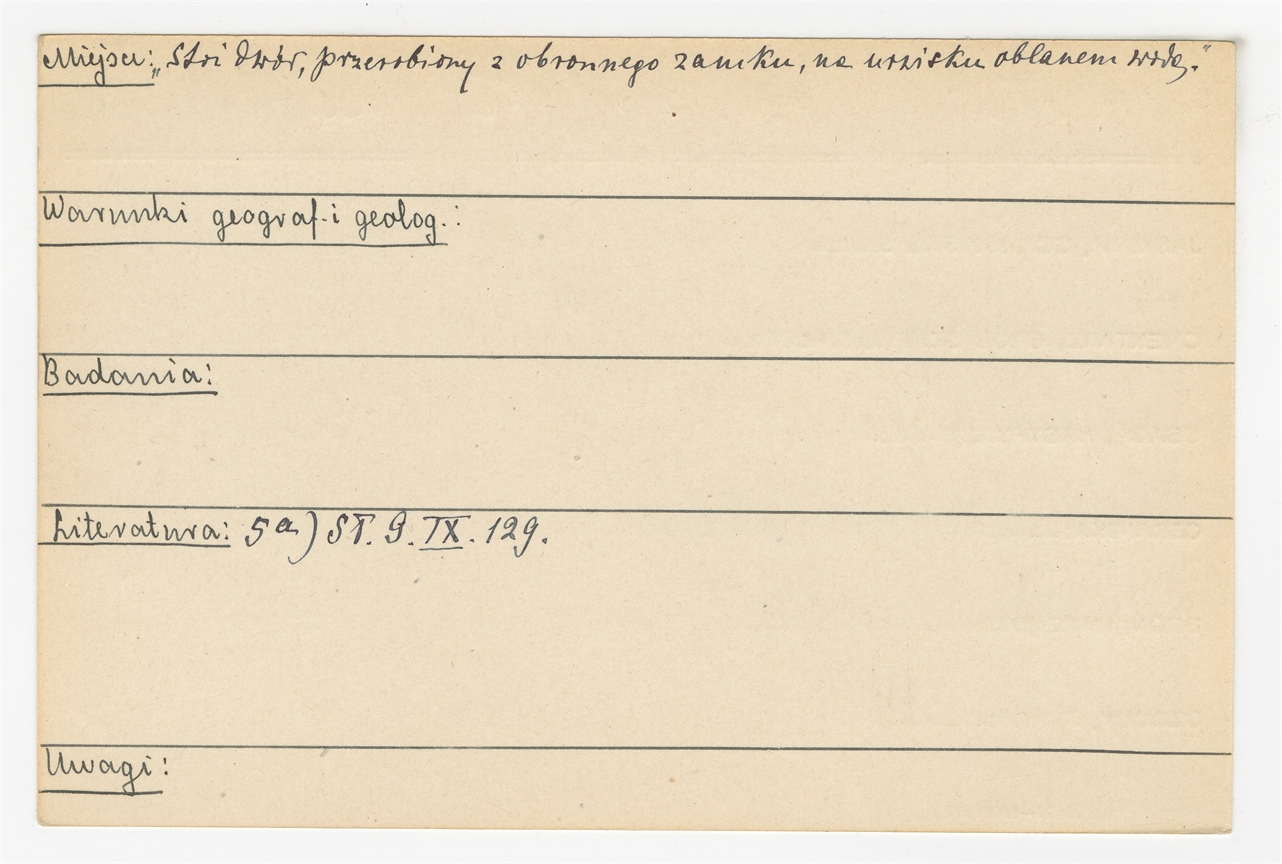 Miejsce: „Stoi dwór, przerobiony z obronnego zamku, na urzisku oblanem wodą."
Warunki geograf. i geolog.:
Badania:
Literatura: 5a) SŁ. G. IX. 129.
Uwagi: